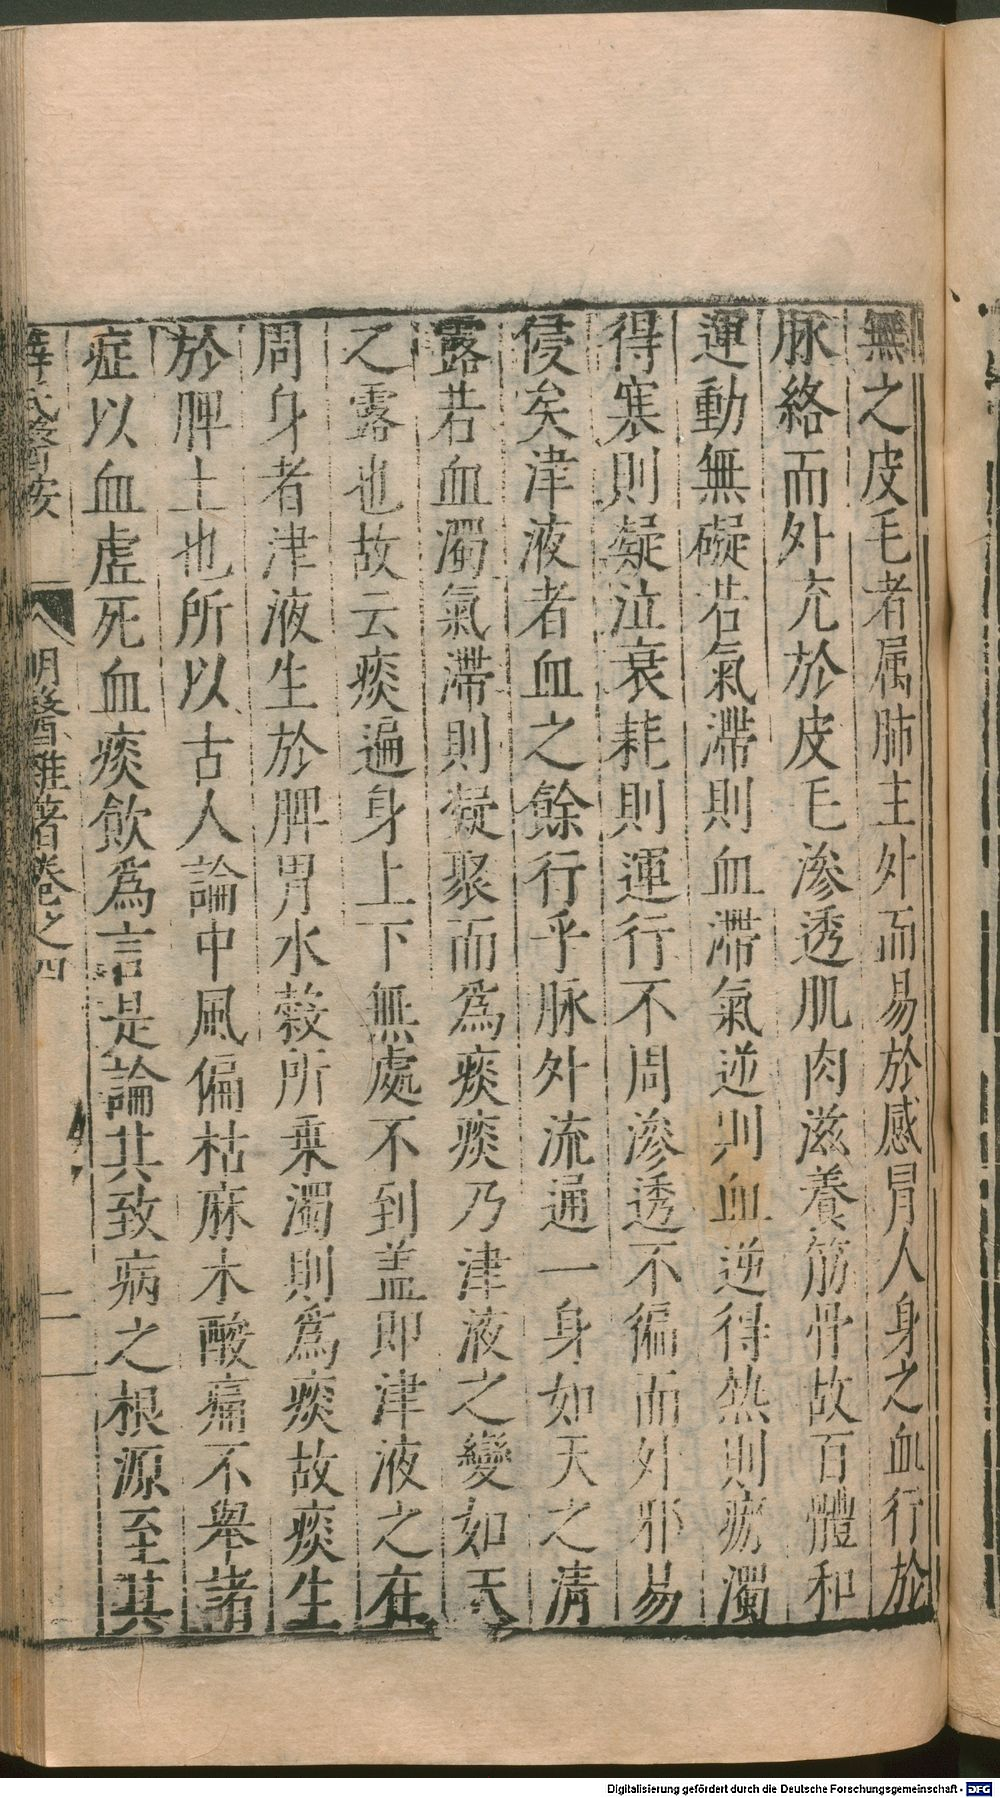 無之皮毛者属肺主外而易於感冐人身之血行於
脉絡而外充於皮毛滲透肌肉滋養筋骨故百體和
運動無礙若氣滯則血滯氣逆則血逆得熱則瘀濁
得寒則凝泣衰耗則運行不周滲透不徧而外邪易
侵矣津液者血之餘行乎脉外流通一身如天之清
露若血濁氣滯則凝聚而爲痰痰乃津液之變如天
之露也故云痰遍身上下無處不到盖即津液之在
周身者津液生於脾胃水榖所乗濁則爲痰故痰生
於脾土也所以古人論中風偏枯麻木酸痛不舉諸
症以血虗死血痰飲爲言是論其致病之根源至其
薛氏醫按 明醫雜著卷之四 二
Digitalisierung gefördert durch die Deutsche Forschungsgemeinschaft - DFG